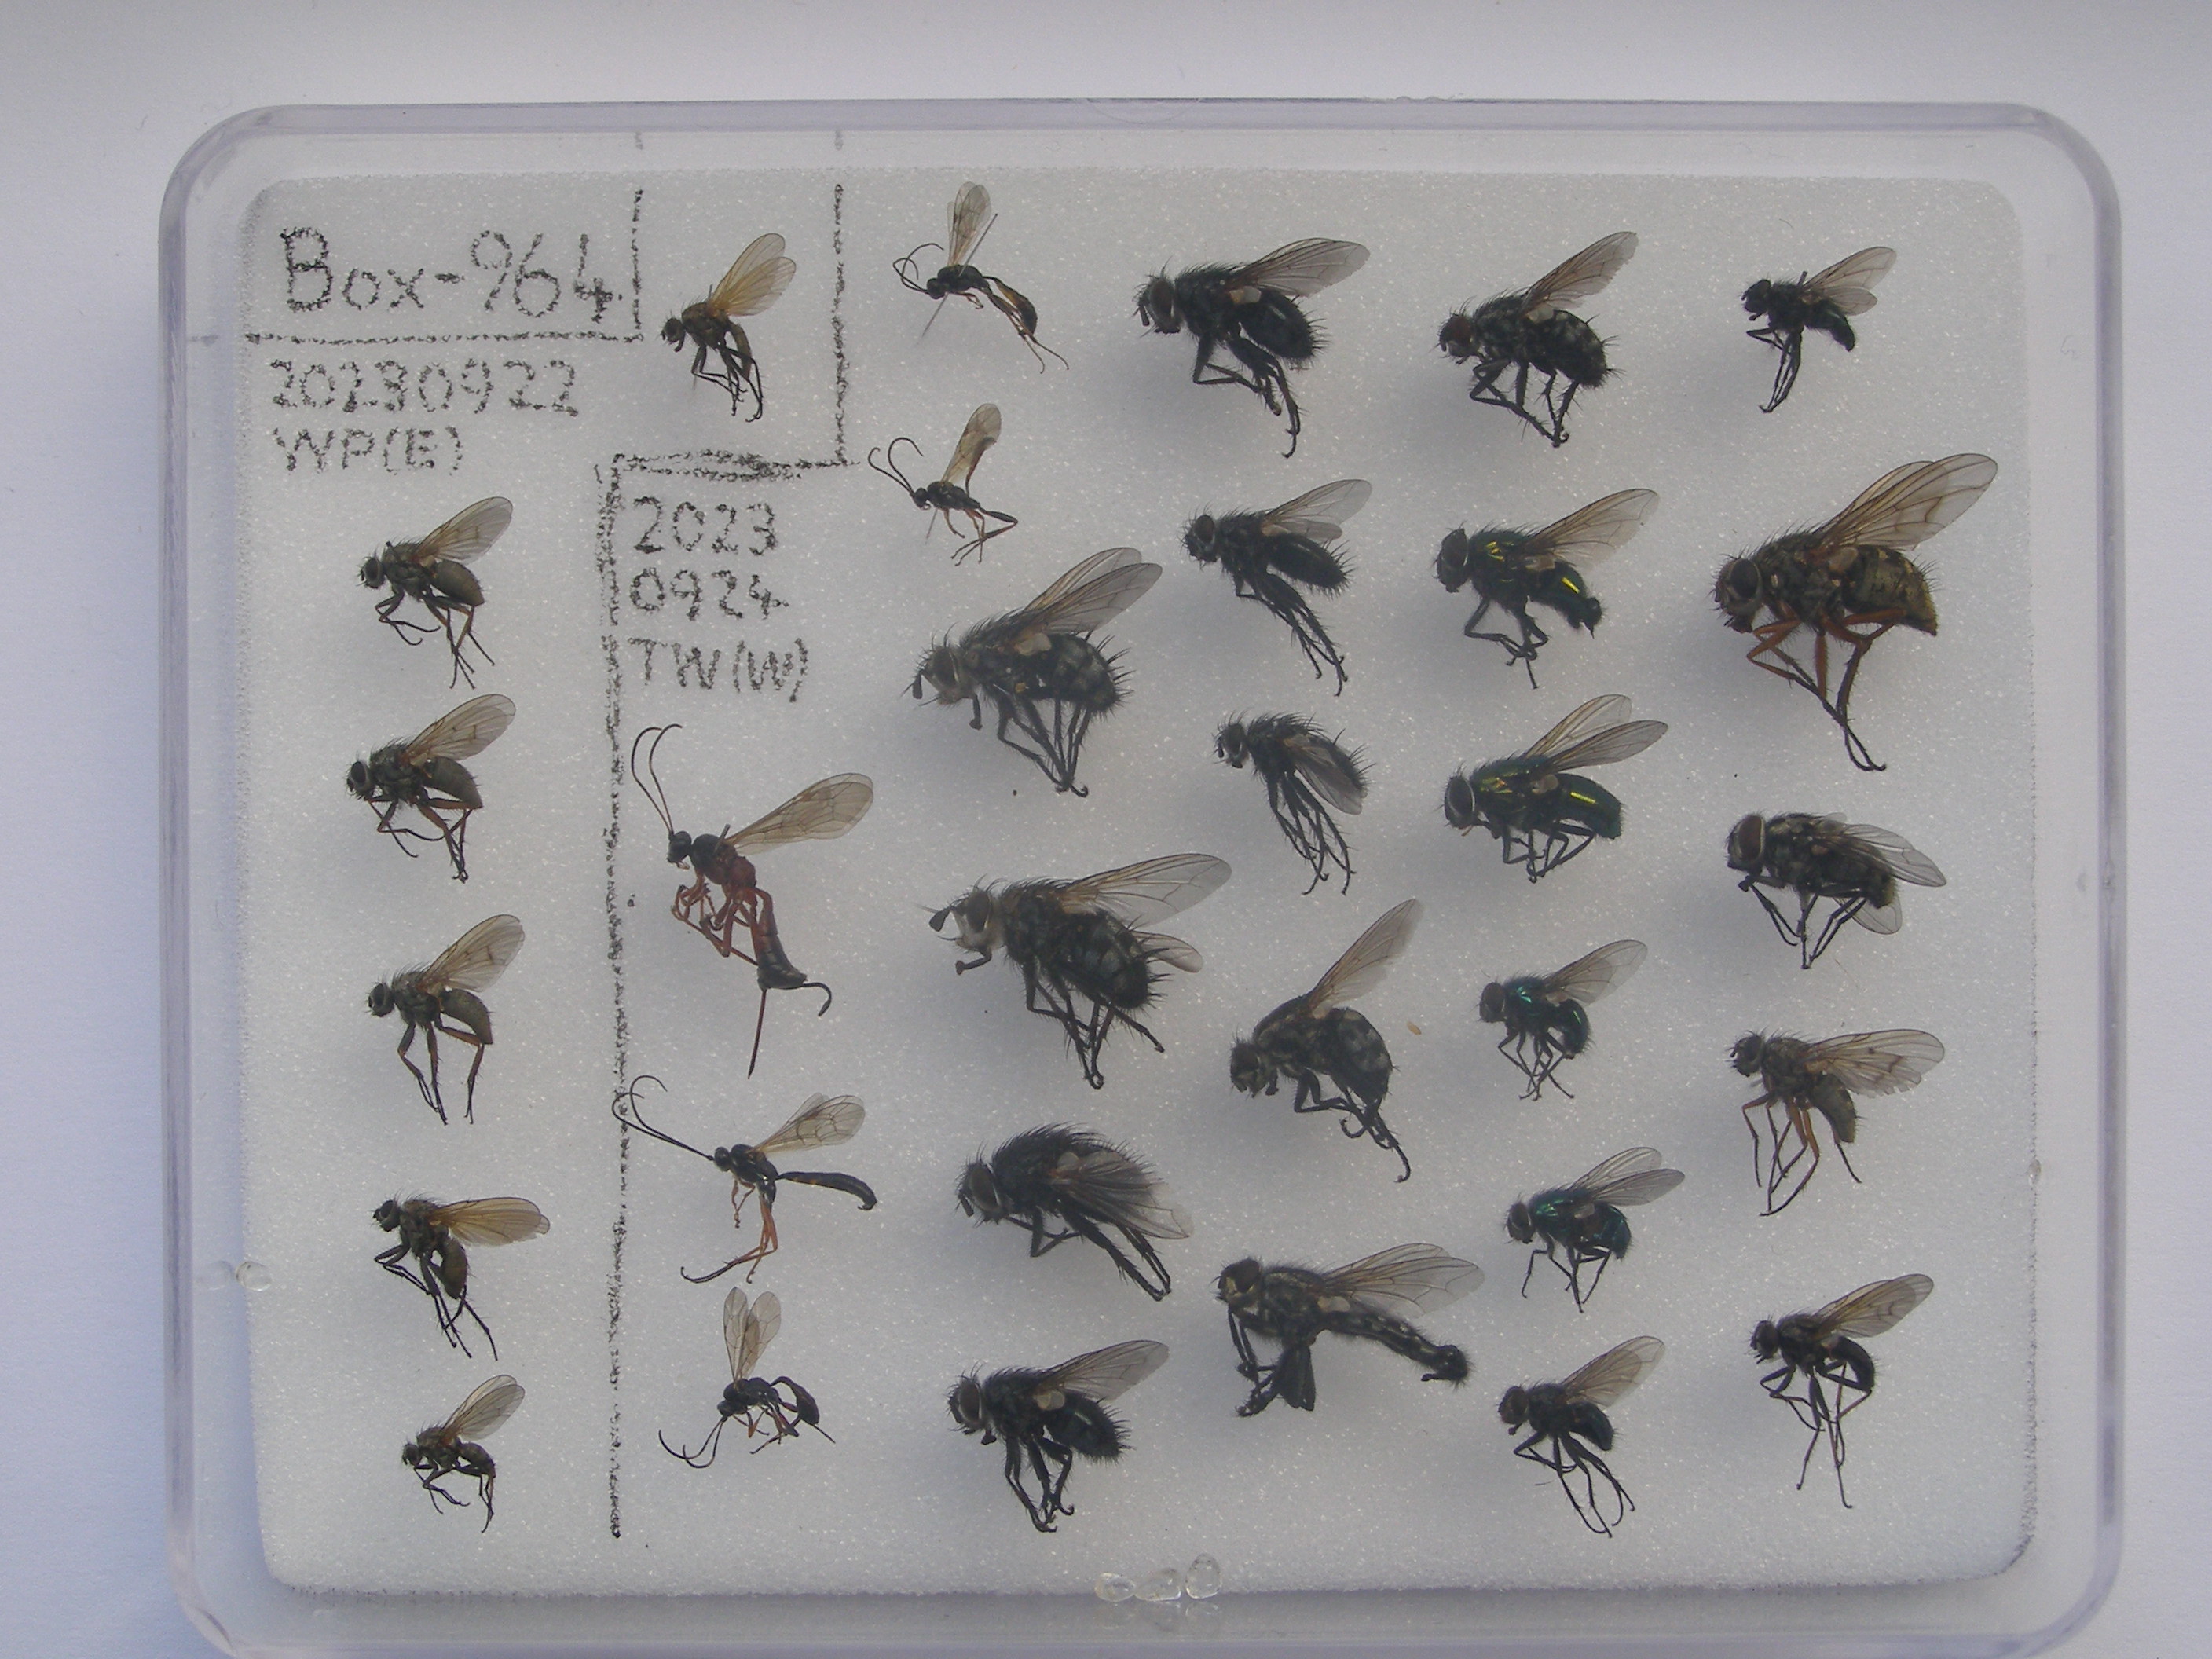 Box-964
20230922
WP(E)
2023
0924
TW(W)